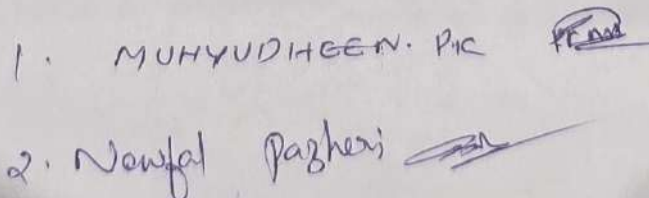 1. MUHYUDHEEN. P.K
2. Nowfal Pazheri